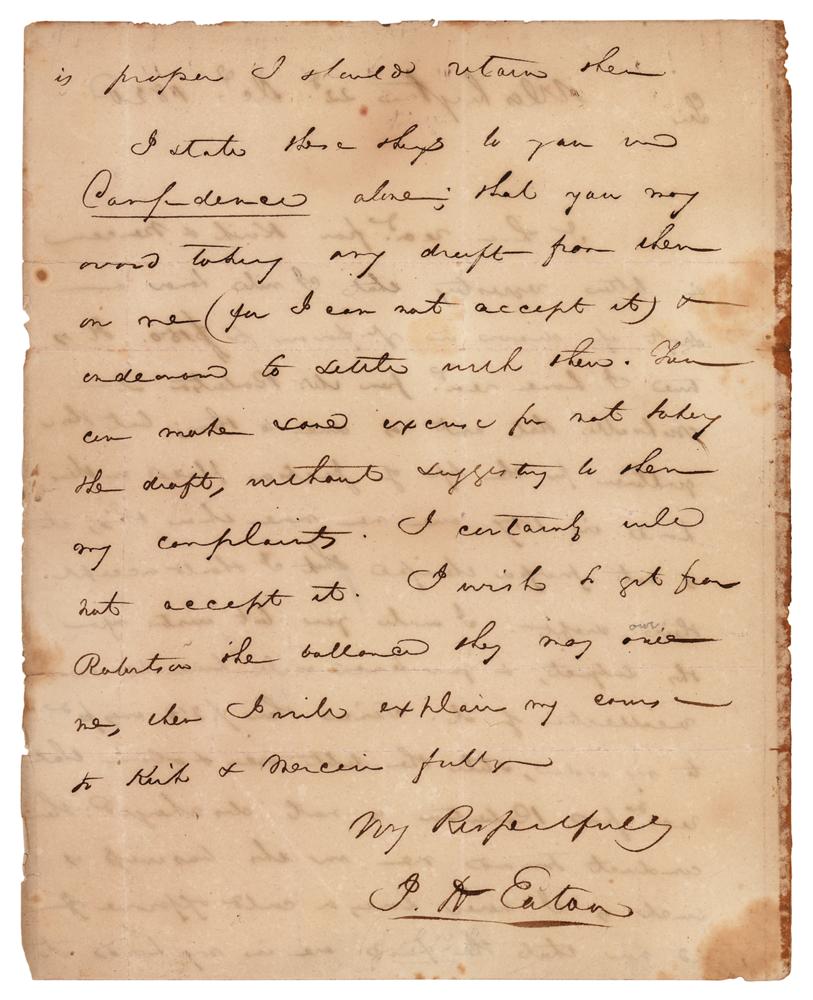 is proper I should retain them
I state these things to you in
Confidence alone; that you may
avoid taking any draft from them
on me (for I can not accept it) &
endeavour to settle with them. You
can make some excuse for not taking
the draft, without suggesting to them
my complaints. I certainly will
not accept it. I wish to get from
owe
Robertson the ballance they may owe
me, then I will explain my course
to Kirk & Mercein fully
Very Respectfully
J. H Eaton